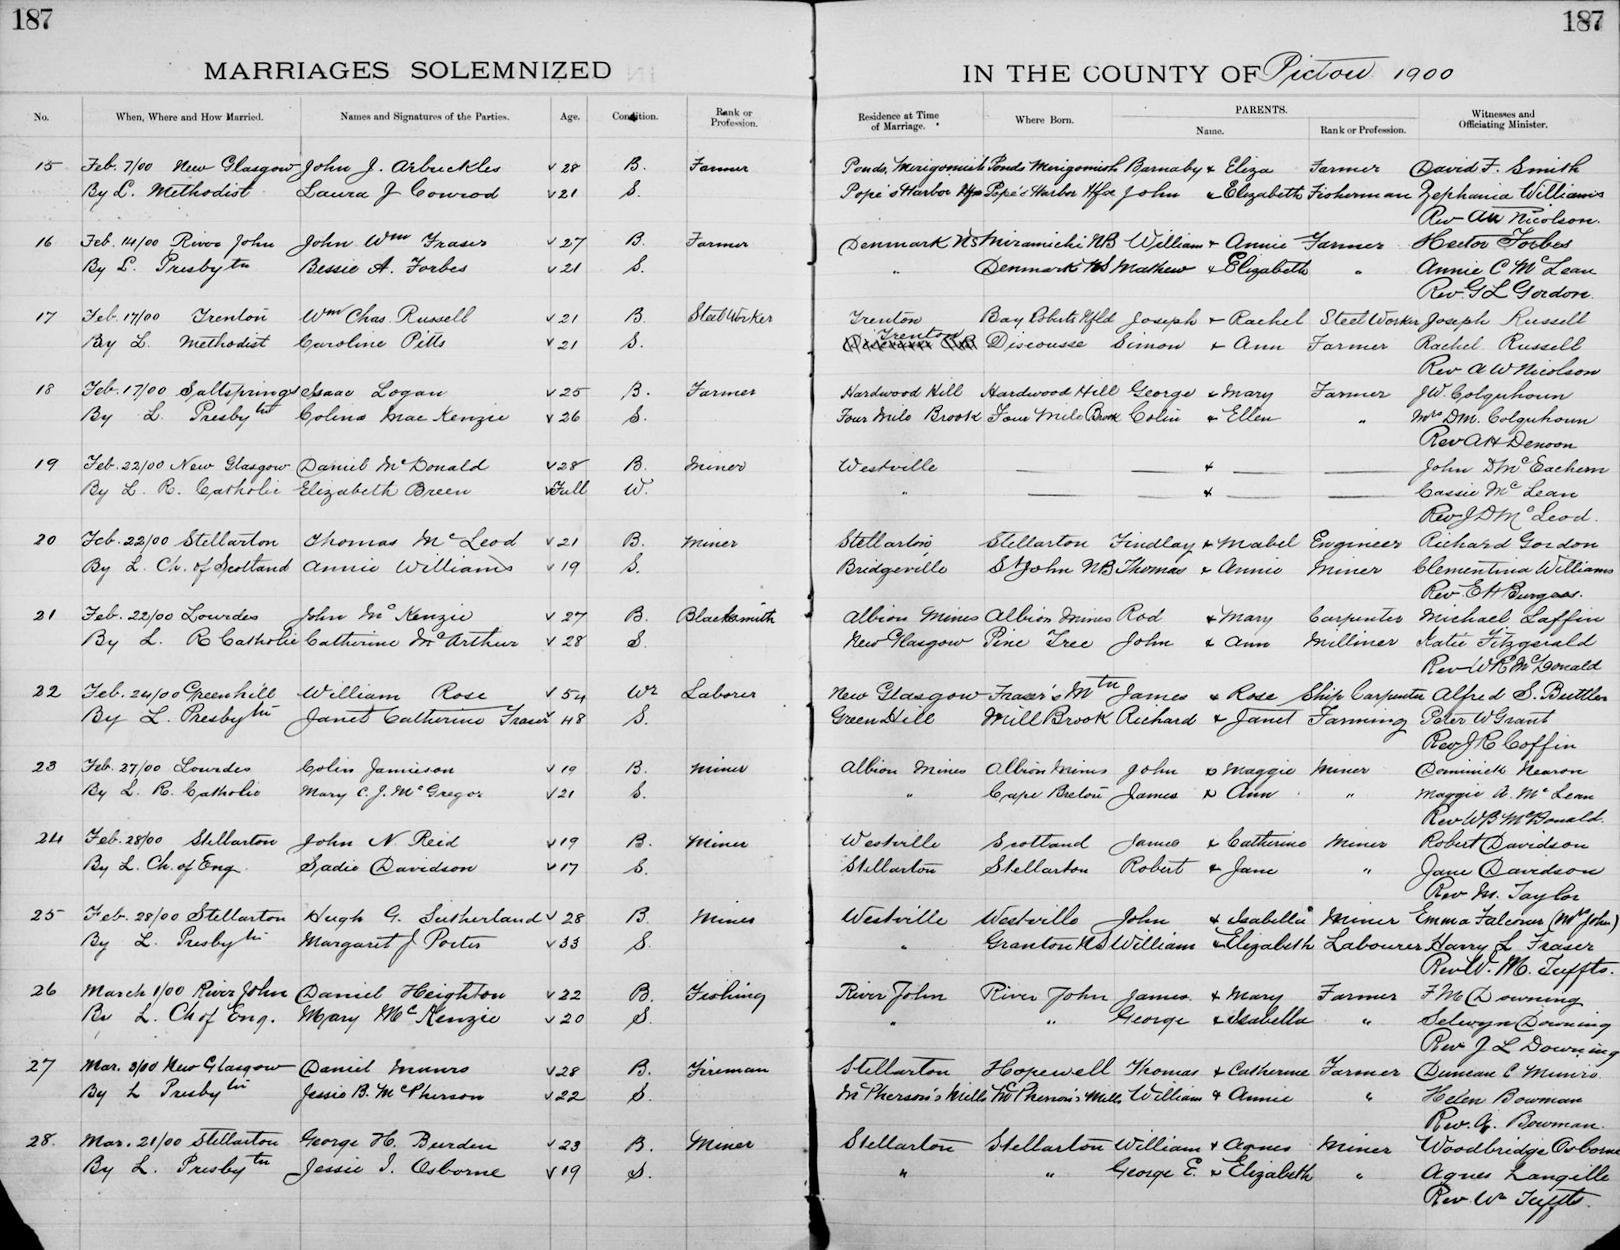 187 187
MARRIAGES SOLEMNIZED IN THE COUNTY OF Pictou 1900
No. When, Where and How Married. Names and Signatures of the Parties. Age. Condition. Rank or Profession. Residence at Time of Marriage. Where Born. PARENTS. Name. Rank or Profession. Witnesses and Officiating Minister.
15 Feb. 7/00 New Glasgow John J. Arbuckles 28 B. Farmer Ponds, Merigomish Ponds Merigomish Barnaby & Eliza Farmer David F. Smith
By L. Methodist Laura J Conrod 21 S. Pope's Harbor Hfx Pope's Harbor Hfx John & Elizabeth Fisherman Zephania Williams
Rev AW Nicolson.
16 Feb. 14/00 River John John Wm Fraser 27 B. Farmer Denmark NS Miramichi NB William & Annie Farmer Hector Forbes
By L. Presbytn Bessie A. Forbes 21 S. " Denmark NS Mathew & Elizabeth " Annie C McLean
Rev. G L Gordon.
17 Feb. 17/00 Trenton Wm Chas. Russell 21 B. Steel Worker Trenton Bay Roberts Nfld Joseph & Rachel Steel Worker Joseph Russell
By L. Methodist Caroline Pitts 21 S. Trenton Discousse Simon & Ann Farmer Rachel Russell
Rev A W Nicolson
18 Feb. 17/00 Saltsprings Isaac Logan 25 B. Farmer Hardwood Hill Hardwood Hill George & Mary Farmer J.W. Colquhoun
By L. Presbytn Colina MacKenzie 26 S. Four Mile Brook Four Mile Brook Colin & Ellen " Mrs D.M. Colquhoun
Rev A H Denoon
19 Feb. 22/00 New Glasgow Daniel McDonald 28 B. Miner Westville — & — — John D McEachern
By L. R. Catholic Elizabeth Breen Full W. " — & — — Cassie McLean
Rev J D McLeod.
20 Feb. 22/00 Stellarton Thomas McLeod 21 B. Miner Stellarton Stellarton Findlay & Mabel Engineer Richard Gordon
By L. Ch. of Scotland Annie Williams 19 S. Bridgeville St John NB Thomas & Annie Miner Clementina Williams
Rev. E H Burgess.
21 Feb. 22/00 Lourdes John McKenzie 27 B. Blacksmith Albion Mines Albion Mines Rod & Mary Carpenter Michael Laffin
By L. R Catholic Catherine McArthur 28 S. New Glasgow Pine Tree John & Ann Milliner Katie Fitzgerald
Rev W B McDonald
22 Feb. 24/00 Greenhill William Rose 54 Wr Laborer New Glasgow Fraser's Mtn James & Rose Ship Carpenter Alfred S. Buttler
By L. Presbytn Janet Catherine Fraser 48 S. Green Hill Mill Brook Richard & Janet Farming Peter W Grant
Rev J R Coffin
23 Feb. 27/00 Lourdes Colin Jamieson 19 B. Miner Albion Mines Albion Mines John & Maggie Miner Dominick Nearon
By L. R. Catholic Mary C. J. McGregor 21 S. " Cape Breton James & Ann " Maggie A. McLean
Rev W B McDonald.
24 Feb. 28/00 Stellarton John N. Reid 19 B. Miner Westville Scotland James & Catherine Miner Robert Davidson
By L. Ch. of Eng. Sadie Davidson 17 S. Stellarton Stellarton Robert & Jane " Jane Davidson
Rev M. Taylor
25 Feb. 28/00 Stellarton Hugh G. Sutherland 28 B. Miner Westville Westville John & Isabella Miner Emma Falconer (Mrs John)
By L. Presbytn Margaret J Porter 33 S. " Granton NS William & Elizabeth Labourer Harry L Fraser
Rev W. M. Tuffts.
26 March 1/00 River John Daniel Heighton 22 B. Fishing River John River John James & Mary Farmer F M Downing
By L. Ch of Eng. Mary McKenzie 20 S. " " George & Isabella " Selwyn Downing
Rev J L Downing
27 Mar. 3/00 New Glasgow Daniel Munro 28 B. Fireman Stellarton Hopewell Thomas & Catherine Farmer Duncan C Munro.
By L Presbytn Jessie B. McPherson 22 S. McPherson's Mills McPherson's Mills William & Annie " Helen Bowman
Rev. A. Bowman.
28. Mar. 21/00 Stellarton George H. Burden 23 B. Miner Stellarton Stellarton William & Agnes Miner Woodbridge Osborne
By L. Presbytn Jessie I. Osborne 19 S. " " George E. & Elizabeth " Agnes Langille
Rev Wm Tuffts.